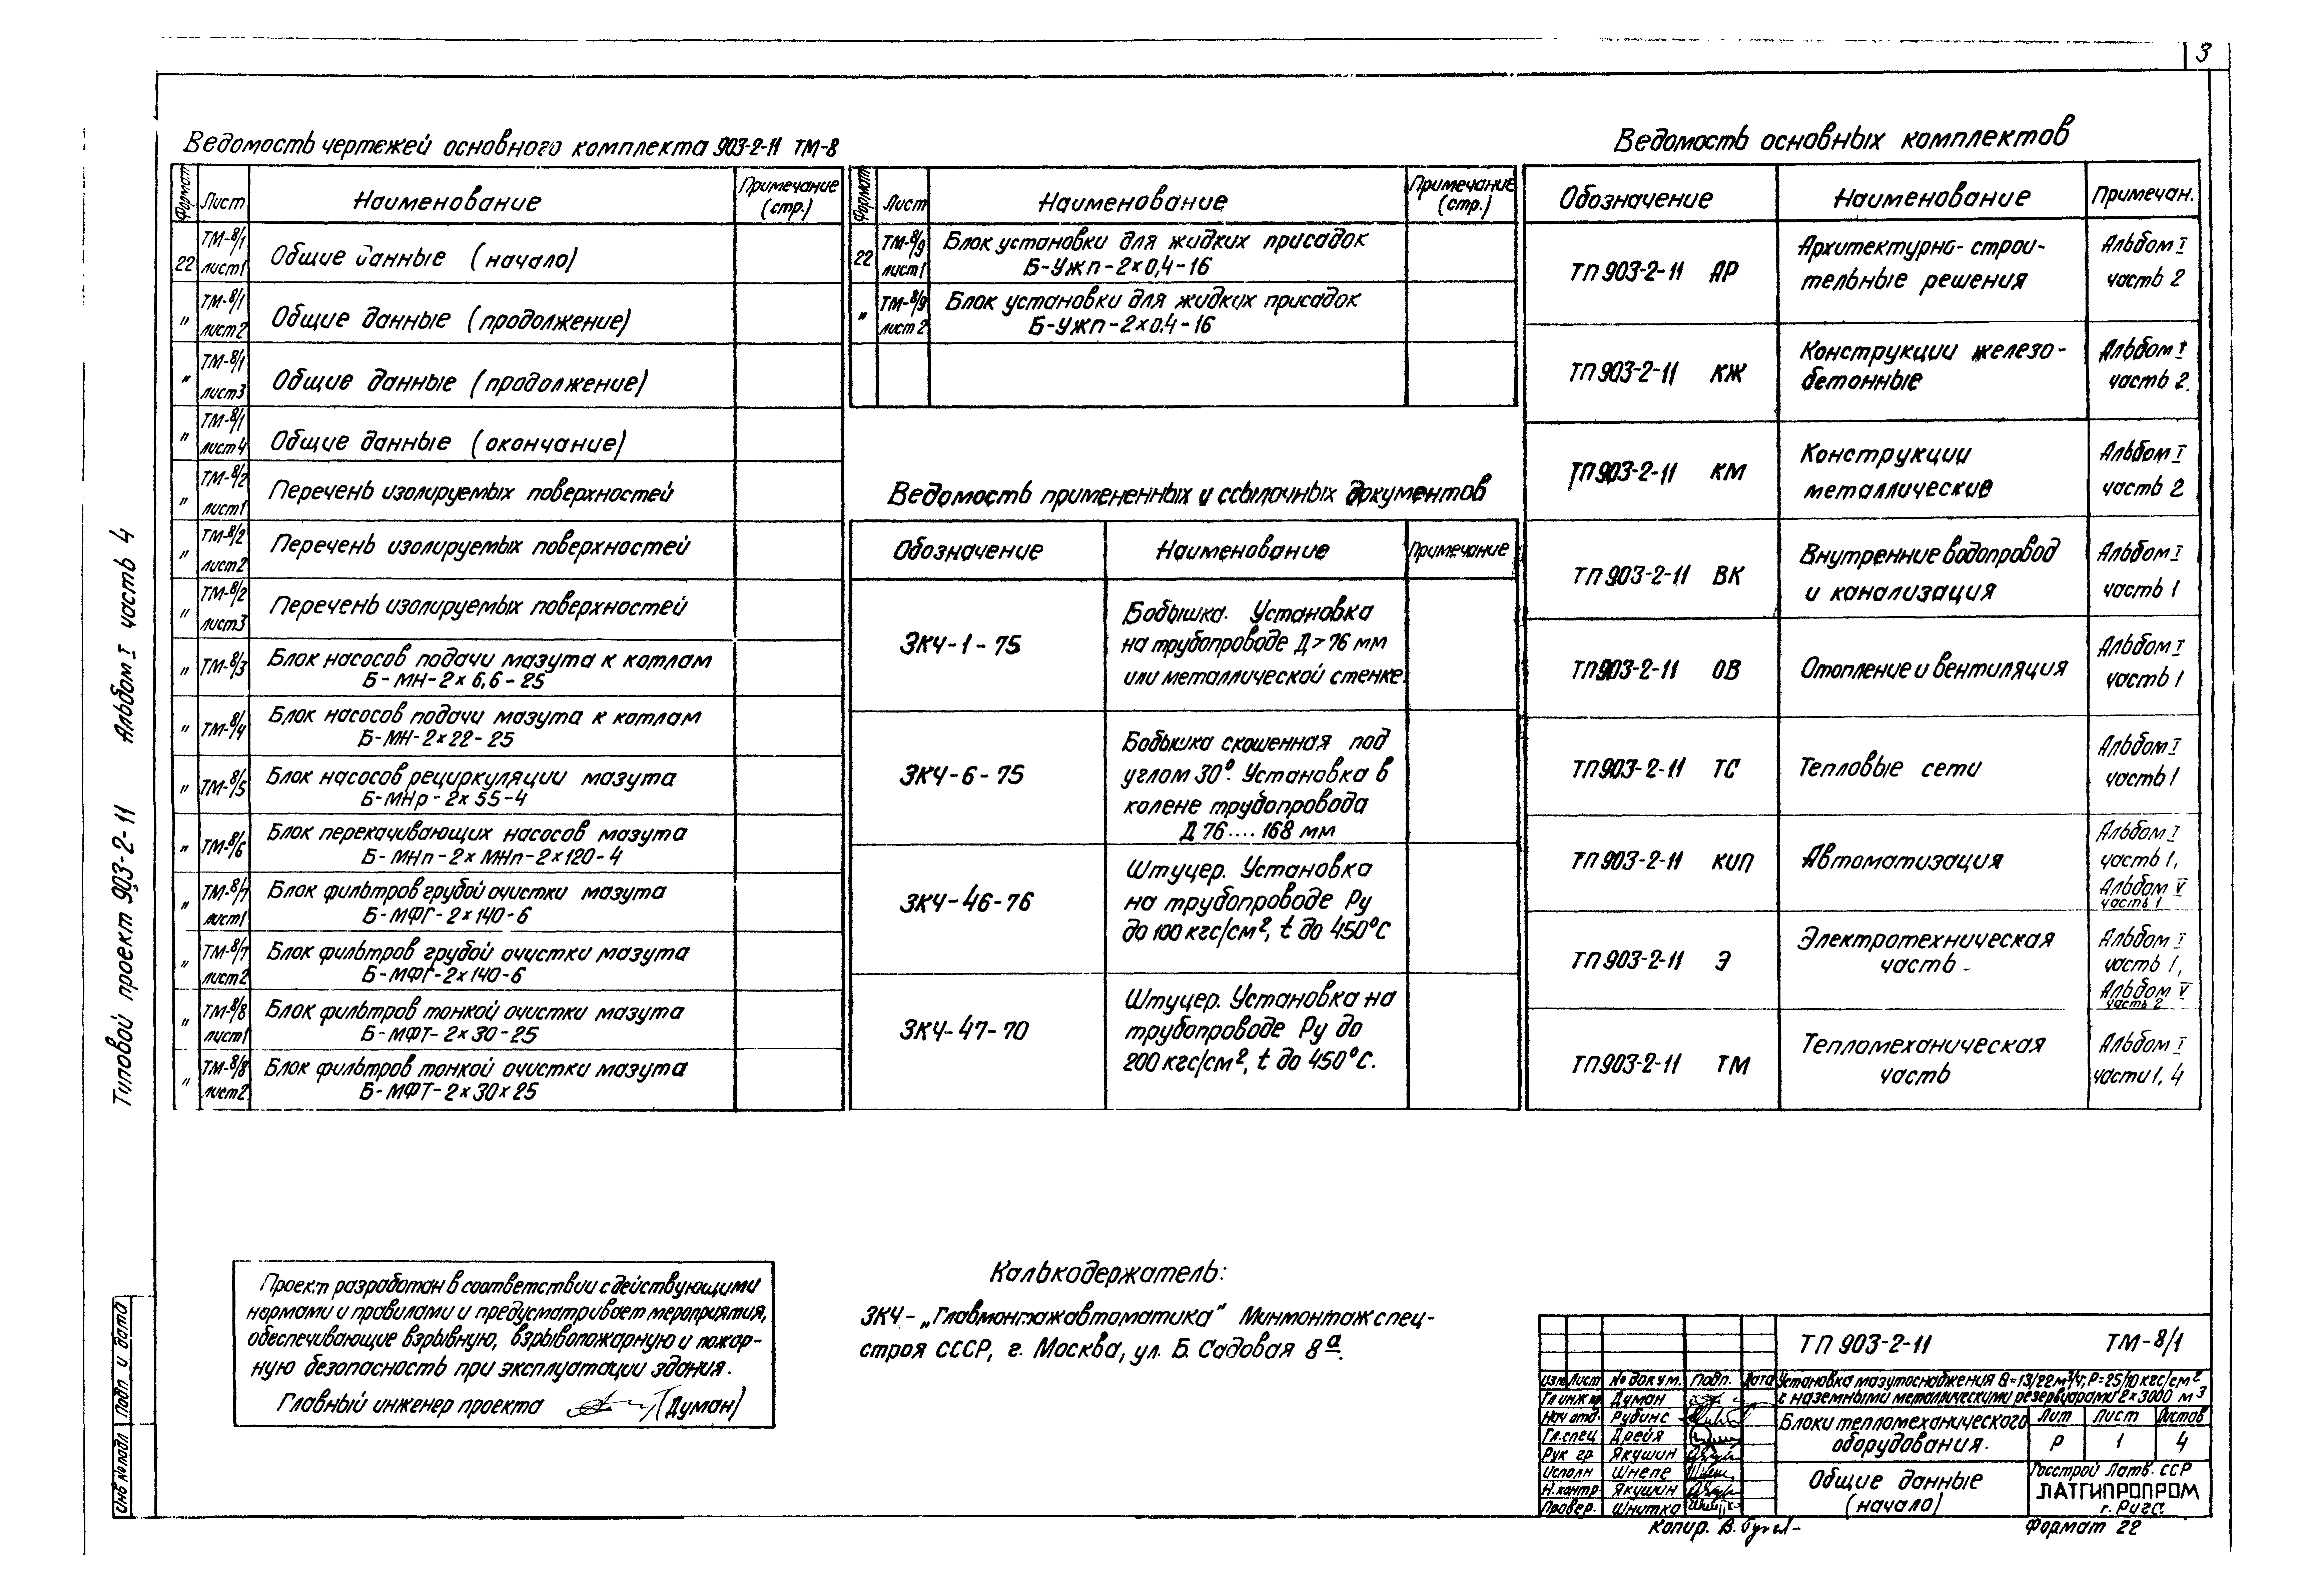 3
Типовой проект 903-2-11 Альбом I часть 4
Ведомость чертежей основного комплекта 903-2-11 ТМ-8
Формат Лист Наименование Примечание (стр.)
22 ТМ-8/1 лист1 Общие данные (начало)
" ТМ-8/1 лист2 Общие данные (продолжение)
" ТМ-8/1 лист3 Общие данные (продолжение)
" ТМ-8/1 лист4 Общие данные (окончание)
" ТМ-8/2 лист1 Перечень изолируемых поверхностей
" ТМ-8/2 лист2 Перечень изолируемых поверхностей
" ТМ-8/2 лист3 Перечень изолируемых поверхностей
" ТМ-8/3 Блок насосов подачи мазута к котлам
Б-МН-2×6,6-25
" ТМ-8/4 Блок насосов подачи мазута к котлам
Б-МН-2×22-25
" ТМ-8/5 Блок насосов рециркуляции мазута
Б-МНр-2×55-4
" ТМ-8/6 Блок перекачивающих насосов мазута
Б-МНп-2×МНп-2×120-4
" ТМ-8/7 лист1 Блок фильтров грубой очистки мазута
Б-МФГ-2×140-6
" ТМ-8/7 лист2 Блок фильтров грубой очистки мазута
Б-МФГ-2×140-6
" ТМ-8/8 лист1 Блок фильтров тонкой очистки мазута
Б-МФТ-2×30-25
" ТМ-8/8 лист2 Блок фильтров тонкой очистки мазута
Б-МФТ-2×30×25
Формат Лист Наименование Примечание (стр.)
22 ТМ-8/9 лист1 Блок установки для жидких присадок
Б-Ужп-2×0,4-16
" ТМ-8/9 лист2 Блок установки для жидких присадок
Б-Ужп-2×0.4-16
Ведомость примененных и ссылочных документов
Обозначение Наименование Примечание
ЗКЧ-1-75 Бобышка. Установка
на трубопроводе Д>76 мм
или металлической стенке.
ЗКЧ-6-75 Бобышка скошенная под
углом 30°. Установка в
колене трубопровода
Д 76....168 мм
ЗКЧ-46-76 Штуцер. Установка
на трубопроводе Ру
до 100 кгс/см², t до 450°С
ЗКЧ-47-70 Штуцер. Установка на
трубопроводе Ру до
200 кгс/см², t до 450°С.
Ведомость основных комплектов
Обозначение Наименование Примечан.
ТП 903-2-11 АР Архитектурно-строи-
тельные решения
Альбом I
часть 2
ТП 903-2-11 КЖ Конструкции железо-
бетонные
Альбом I
часть 2.
ТП 903-2-11 КМ Конструкции
металлические
Альбом I
часть 2
ТП 903-2-11 ВК Внутренние водопровод
и канализация
Альбом I
часть 1
ТП 903-2-11 ОВ Отопление и вентиляция
Альбом I
часть 1
ТП 903-2-11 ТС Тепловые сети
Альбом I
часть 1
ТП 903-2-11 КИП Автоматизация
Альбом I
часть 1,
Альбом V
часть 1
ТП 903-2-11 Э Электротехническая
часть -
Альбом I
часть 1,
Альбом V
часть 2
ТП 903-2-11 ТМ Тепломеханическая
часть
Альбом I
части 1, 4
Проект разработан в соответствии с действующими
нормами и правилами и предусматривает мероприятия,
обеспечивающие взрывную, взрывопожарную и пожар-
ную безопасность при эксплуатации здания.
Главный инженер проекта (Думан)
Калькодержатель:
ЗКЧ - „Главмонтажавтоматика" Минмонтажспец-
строя СССР, г. Москва, ул. Б. Садовая 8а.
ТП 903-2-11 ТМ-8/1
Изм Лист № докум. Подп. Дата
Гл инж пр. Думан
Нач отд. Рубинс
Гл.спец Дрейя
Рук гр Якушин
Исполн Шнепе
Н.контр Якушин
Провер. Шнитка
Установка мазутоснабжения Q=13/22 м³/ч; Р=25/10 кгс/см²
с наземными металлическими резервуарами 2×3000 м³
Блоки тепломеханического
оборудования.
Лит Лист Листов
Р 1 4
Общие данные
(начало)
Госстрой Латв. ССР
ЛАТГИПРОПРОМ
г. Рига.
Копир. В.
Формат 22
Инв № подл Подп и дата